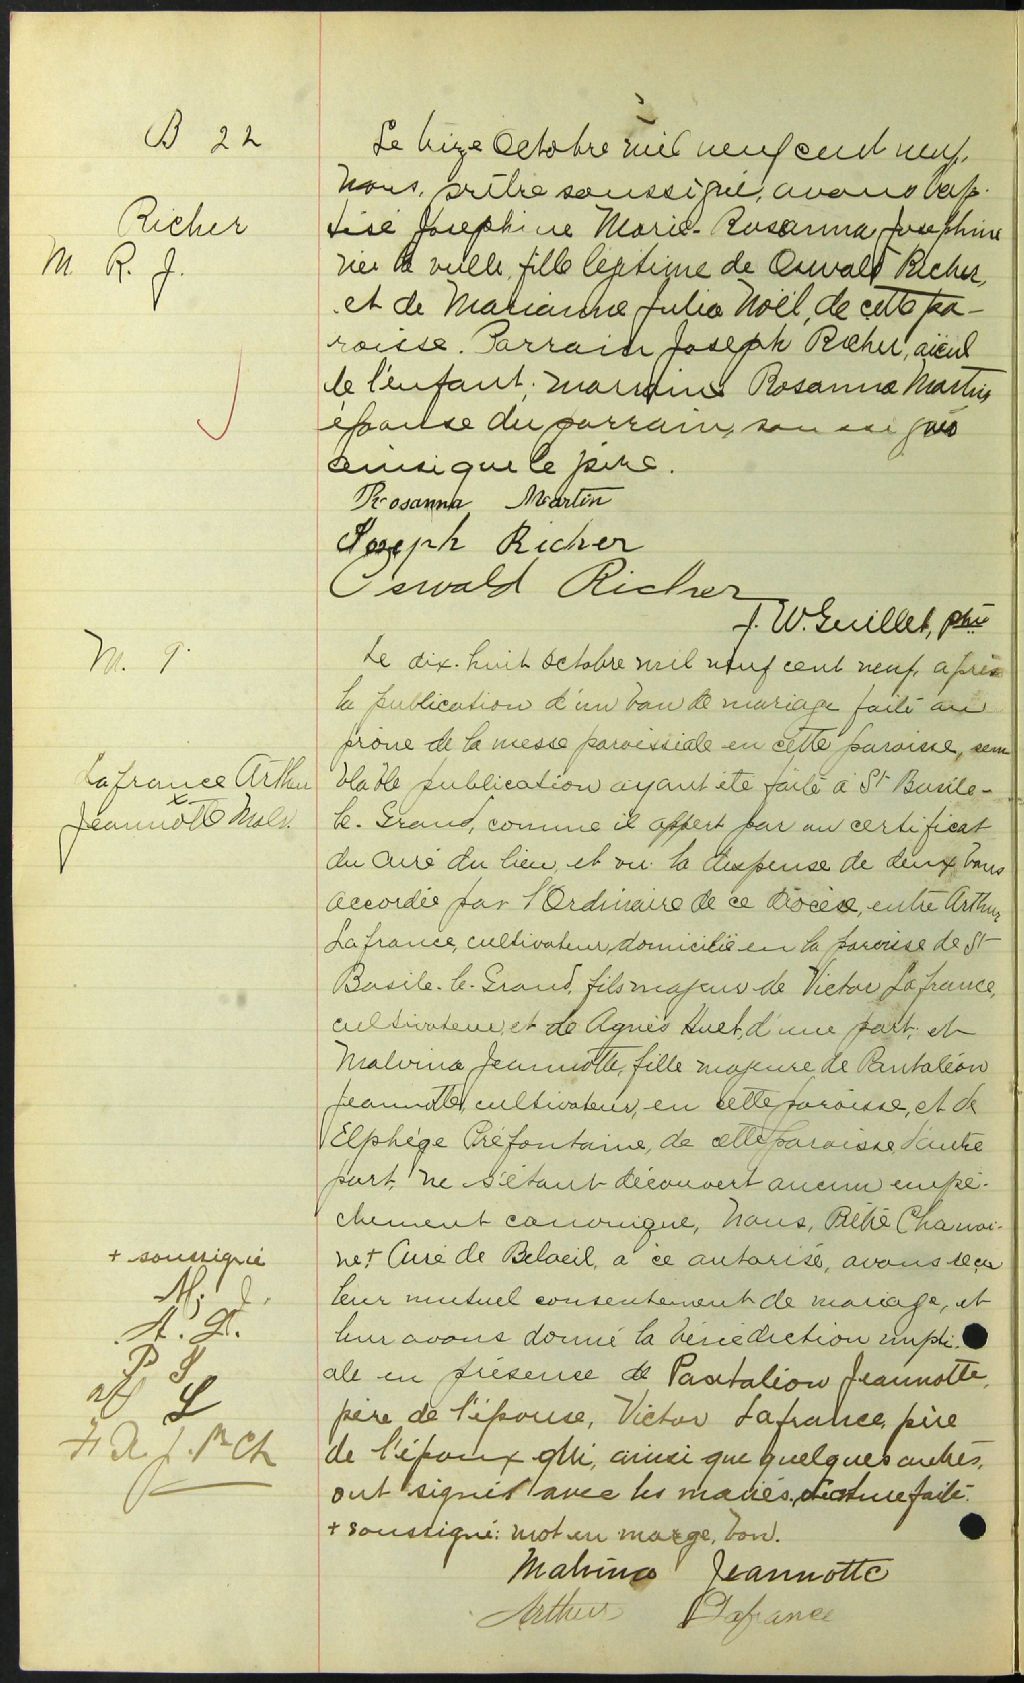 B 22
Richer
M. R. J.
Le treize Octobre mil neuf cent neuf,
nous, prêtre soussigné, avons bap-
tisé Josephine Marie-Rosanna Josephine
née la veille, fille légitime de Oswald Richer,
et de Marianne Julia Noël, de cette pa-
roisse. Parrain Joseph Richer, aieul
de l'enfant; marraine Rosanna Martin
épouse du parrain, soussignés
ainsi que le père.
Rosanna Martin
Joseph Richer
Oswald Richer
J. W. Guillet, ptre
M. 9.
Lafrance Arthur
x
Jeannotte Malv.
Le dix-huit Octobre mil neuf cent neuf, après
la publication d'un ban de mariage faite au
prône de la messe paroissiale en cette paroisse, sem
blable publication ayant été faite à St Basile-
le-Grand, comme il appert par un certificat
du curé du lieu, et vu la dispense de deux bans
accordée par l'Ordinaire de ce diocèse, entre Arthur
Lafrance, cultivateur, domicilié en la paroisse de St
Basile-le-Grand, fils majeur de Victor Lafrance,
cultivateur, et de Agnès Huet, d'une part; et
Malvina Jeannotte, fille majeure de Pantaléon
Jeannotte, cultivateur, en cette paroisse, et de
Elphége Préfontaine, de cette paroisse, d'autre
part, ne s'étant découvert aucun empê-
chement canonique, Nous, Prêtre Chanoi-
ne + Curé de Beloeil, à ce autorisé, avons reçu
leur mutuel consentement de mariage, et
leur avons donné la bénédiction nupti-
ale en présence de Pantaléon Jeannotte,
père de l'épouse, Victor Lafrance, père
de l'époux qui, ainsi que quelques autres,
ont signé avec les mariés, lecture faite.
+ soussigné: mot en marge, bon.
+ soussigné
M. J.
A. L.
P J
L
Malvina Jeannotte
Arthur Lafrance